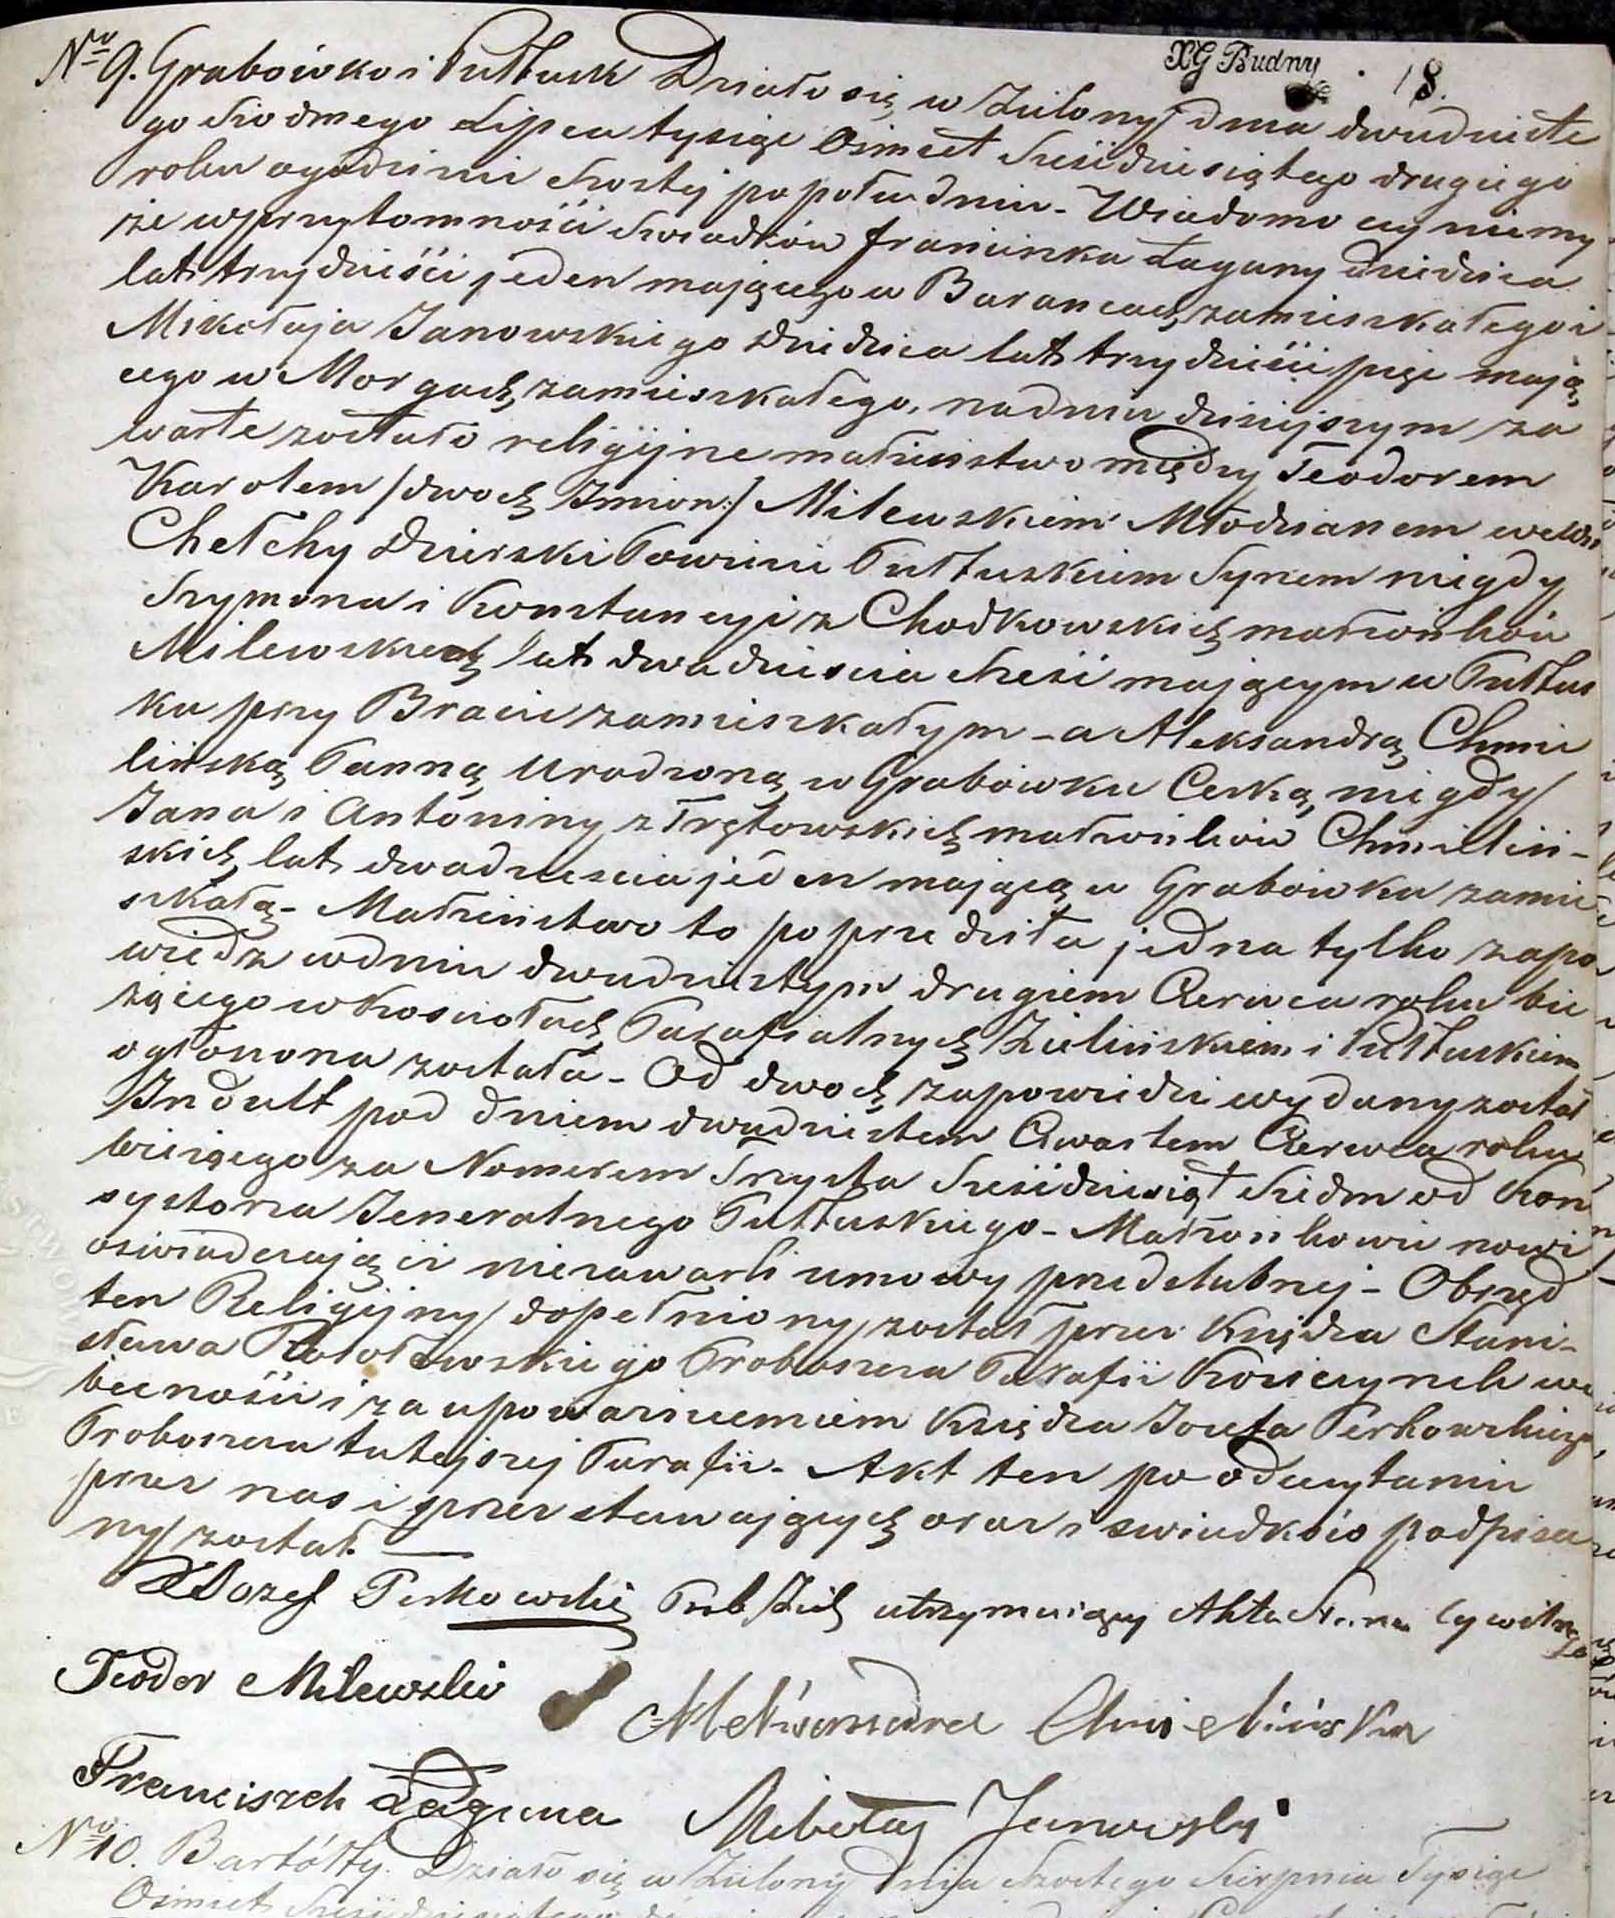 XG Budny 18.
No 9. Grabówko i Pułtusk Działo się w Zielony dnia dwudzieste
go siodmego Lipca tysiąc Ośmset Sześdziesiątego drugiego
roku ogodzinie szostej popołudniu - Wiadomo czyniemy
że wprzytomności Swiadków Franciszka Łaguny Dziedzica
lat trzydzieści jeden mającego w Barancach zamieszkałego i
Mikołaja Janowskiego Dziedzica lat trzydzieści pięc mają
cego w Morgach zamieszkałego, nadniu dzisiejszym za
warte zostało religijne małżeństwo między Teodorem
Karolem /dwoch Imion:/ Milewskiem Młodzianem we Wsi
Chełchy Dzierski Powiecie Pułtuskiem Synem niegdy
Szymona i Konstancyi z Chodkowskich małżonków
Milewskich lat dwadziescia sześć mającym w Pułtus
ku przy Bracie zamieszkałym - a Aleksandrą Chmie
lińską Panną Urodzoną w Grabówku Cerką niegdy
Jana i Antoniny z Trętowskich małżonków Chmieliń-
skich lat dwadziesciajeden mającą w Grabówku zamie
szkałą - Małżeństwo to poprzedziła jedna tylko zapo
wiedz wdniu dwudziestym drugiem Czerwca roku bie
żącego w Kosciołach Parafialnych Zielińskiem i Pułtuskiem
ogłoszona została - Od dwoch zapowiedzi wydany został
Indult pod dniem dwudziestem Czwartem Czerwca roku
bieżącego za Nomerem Trzysta Sześdziesiąt siedm od Kon
systorza Jeneralnego Pułtuskiego - Małżonkowie nowi
oświadczają iż niezawarli umowy przedslubnej - Obrzęd
ten Religijny dopełniony został przez Księdza Stani-
sława Proboszcza Parafii w o
becności i za upoważnieniem Księdza Jozefa Perkowskiego
Proboszcza tutejszej Parafii - Akt ten po odczytaniu
przez nas i przez stawających oraz swiadków podpisa
ny został.
XJozef Perkowski Prob Ziel utrzymujący Akta Stanu Cywilnego
Teodor Milewski
Aleksandra Chmielińska
Franciszek Łaguna Mikołaj Janowski
No 10. Bartołty. Działo się w Zielony Dnia Szostego Sierpnia Tysiąc
Ośmset